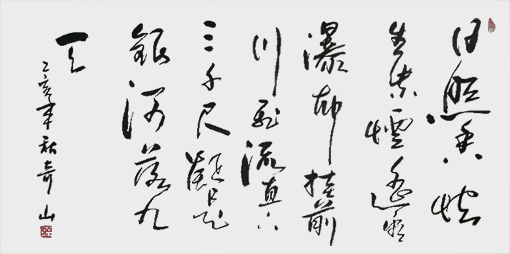 日照香炉
生紫煙遥看
瀑布挂前
川飛流直下
三千尺疑是
銀河落九
天
乙亥年秋奇山